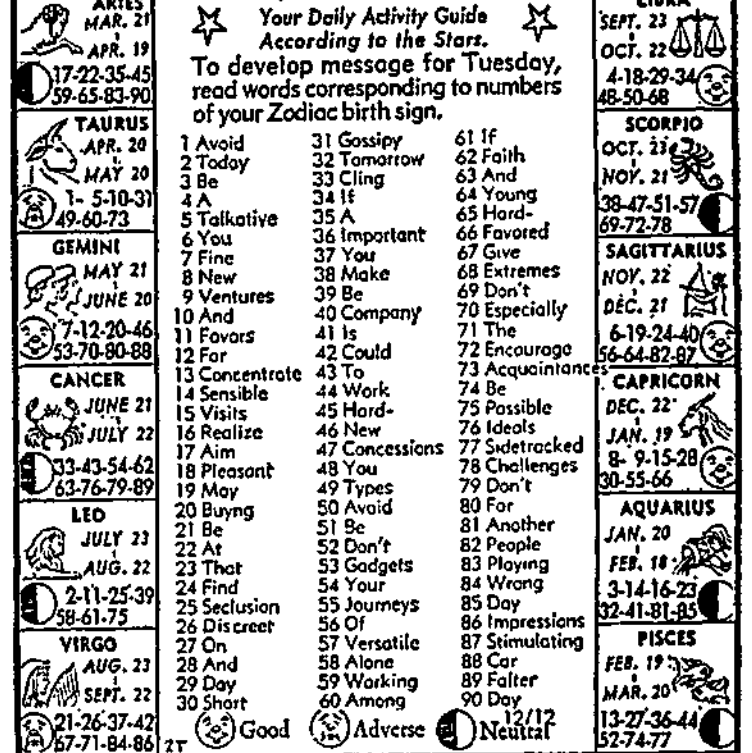 ARIES
MAR. 21
APR. 19
17-22-35-45
59-65-83-90
TAURUS
APR. 20
MAY 20
1- 5-10-31
49-60-73
GEMINI
MAY 21
JUNE 20
7-12-20-46
53-70-80-88
CANCER
JUNE 21
JULY 22
33-43-54-62
63-76-79-89
LEO
JULY 23
AUG. 22
2-11-25-39
58-61-75
VIRGO
AUG. 23
SEPT. 22
21-26-37-42
67-71-84-86
Your Daily Activity Guide
According to the Stars.
To develop message for Tuesday,
read words corresponding to numbers
of your Zodiac birth sign.
1 Avoid
2 Today
3 Be
4 A
5 Talkative
6 You
7 Fine
8 New
9 Ventures
10 And
11 Favors
12 For
13 Concentrate
14 Sensible
15 Visits
16 Realize
17 Aim
18 Pleasant
19 May
20 Buyng
21 Be
22 At
23 That
24 Find
25 Seclusion
26 Discreet
27 On
28 And
29 Day
30 Short
31 Gossipy
32 Tomorrow
33 Cling
34 If
35 A
36 Important
37 You
38 Make
39 Be
40 Company
41 Is
42 Could
43 To
44 Work
45 Hard-
46 New
47 Concessions
48 You
49 Types
50 Avoid
51 Be
52 Don't
53 Gadgets
54 Your
55 Journeys
56 Of
57 Versatile
58 Alone
59 Working
60 Among
61 If
62 Faith
63 And
64 Young
65 Hard-
66 Favored
67 Give
68 Extremes
69 Don't
70 Especially
71 The
72 Encourage
73 Acquaintances
74 Be
75 Possible
76 Ideals
77 Sidetracked
78 Challenges
79 Don't
80 For
81 Another
82 People
83 Playing
84 Wrong
85 Day
86 Impressions
87 Stimulating
88 Car
89 Falter
90 Day
12/12
Good Adverse Neutral
LIBRA
SEPT. 23
OCT. 22
4-18-29-34
48-50-68
SCORPIO
OCT. 23
NOV. 21
38-47-51-57
69-72-78
SAGITTARIUS
NOV. 22
DEC. 21
6-19-24-40
56-64-82-87
CAPRICORN
DEC. 22
JAN. 19
8- 9-15-28
30-55-66
AQUARIUS
JAN. 20
FEB. 18
3-14-16-23
32-41-81-85
PISCES
FEB. 19
MAR. 20
13-27-36-44
52-74-77